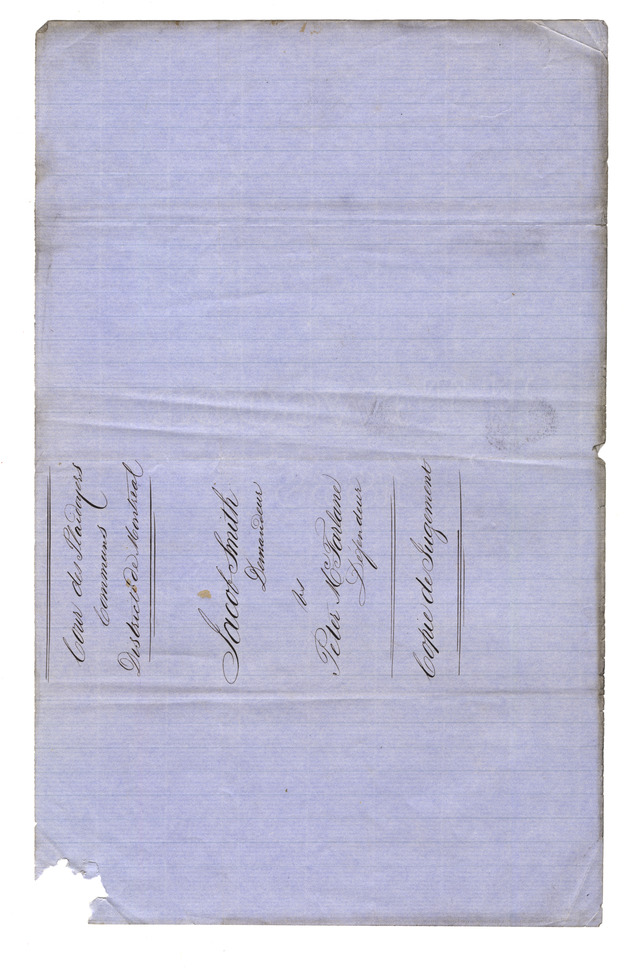 Cour des Plaidoyers
Communs
District de Montreal
Jacob Smith
Demandeur
vs
Peter McFarlane
Défendeur
Copie de Jugement